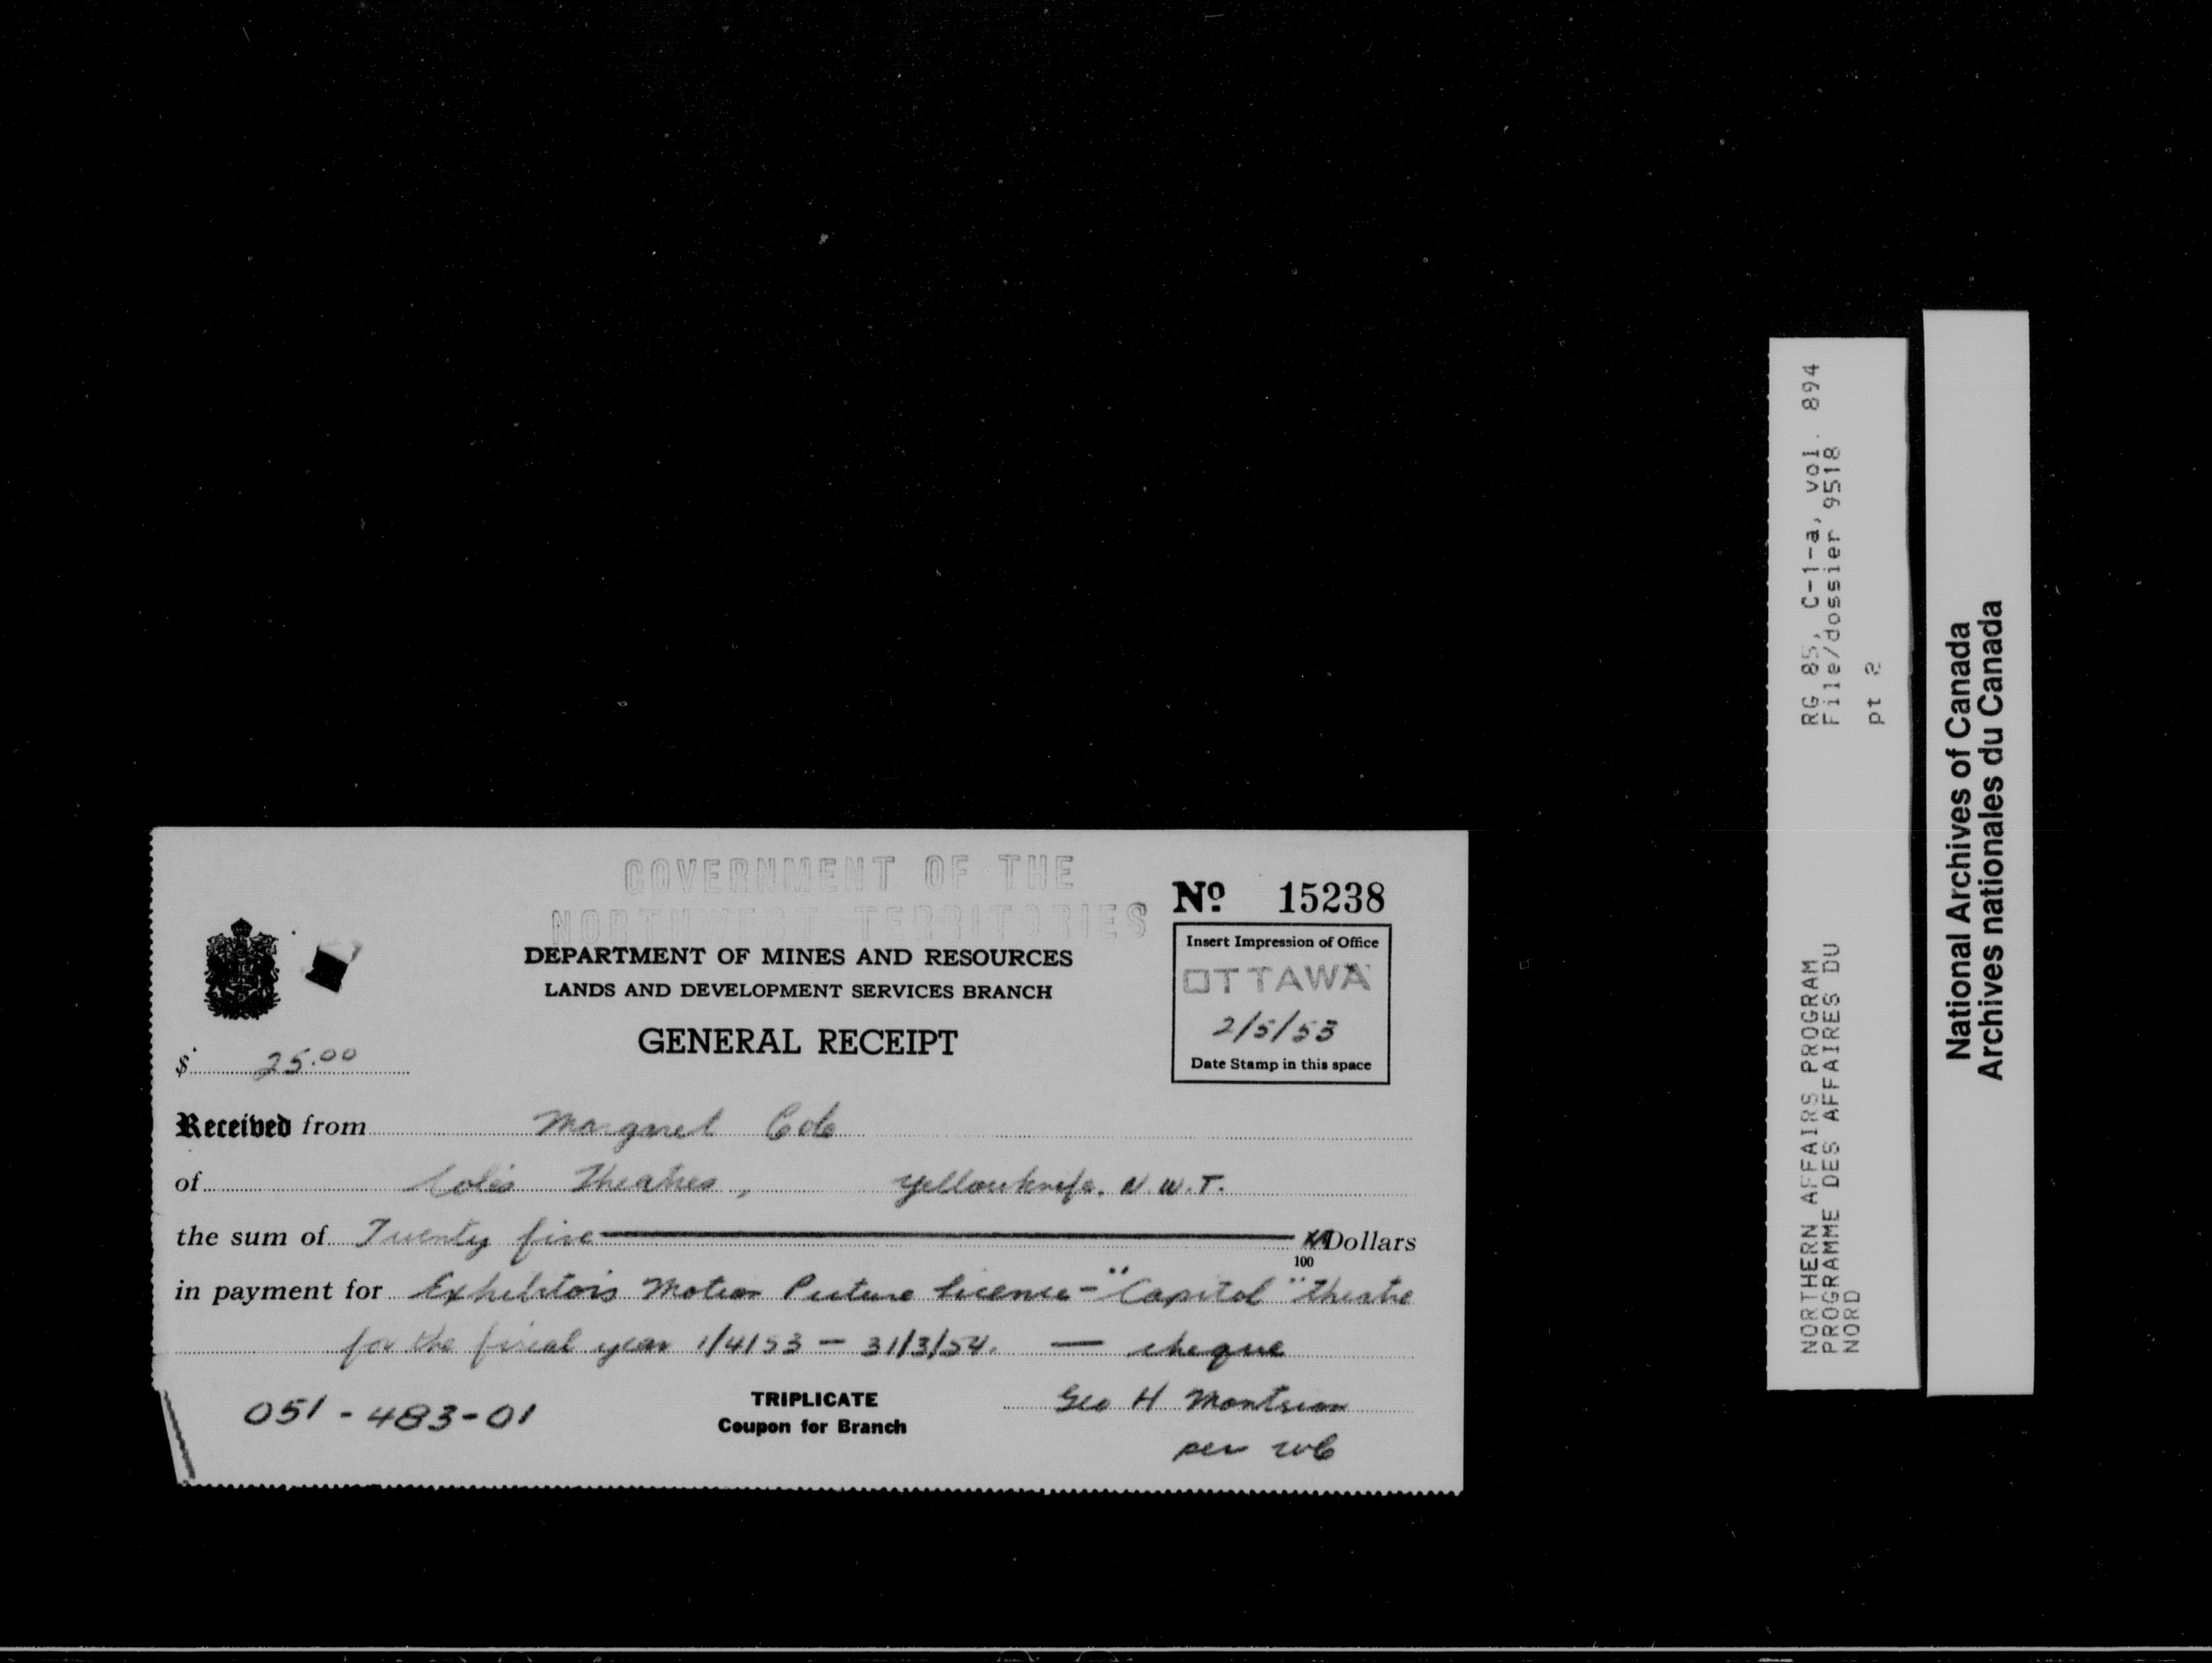 GOVERNMENT OF THE
NORTHWEST TERRITORIES
DEPARTMENT OF MINES AND RESOURCES
LANDS AND DEVELOPMENT SERVICES BRANCH
GENERAL RECEIPT
No. 15238
Insert Impression of Office
OTTAWA
2/5/53
Date Stamp in this space
$ 25.00
Received from Margaret Cole
of Cole's Theatres, Yellowknife. N.W.T.
the sum of Twenty five Dollars
100
in payment for Exhibitors Motion Picture license - "Capitol" Theatre
for the fiscal year 1/4/53 - 31/3/54. - cheque
051-483-01
TRIPLICATE
Coupon for Branch
Geo H
per
RG 85, C-1-a, vol. 894
File/dossier 9518
pt 2
NORTHERN AFFAIRS PROGRAM
PROGRAMME DES AFFAIRES DU
NORD
National Archives of Canada
Archives nationales du Canada